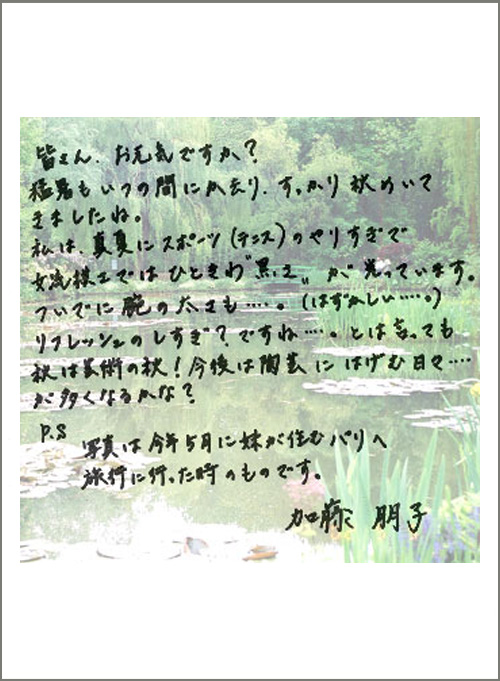 皆さん、お元気ですか?
猛暑もいつの間にか去り、すっかり秋めいて
きましたね。
私は、真夏にスポーツ(テニス)のやりすぎで
女流棋士ではひときわ〝黒さ〟が光っています。
ついでに腕の太さも‥‥。(はずかしい‥‥。)
リフレッシュのしすぎ?ですね‥‥。とは言っても
秋は芸術の秋!今後は陶芸にはげむ日々‥‥
が多くなるかな?
P.S
写真は今年5月に妹が住むパリへ
旅行に行った時のものです。
加藤 朋子